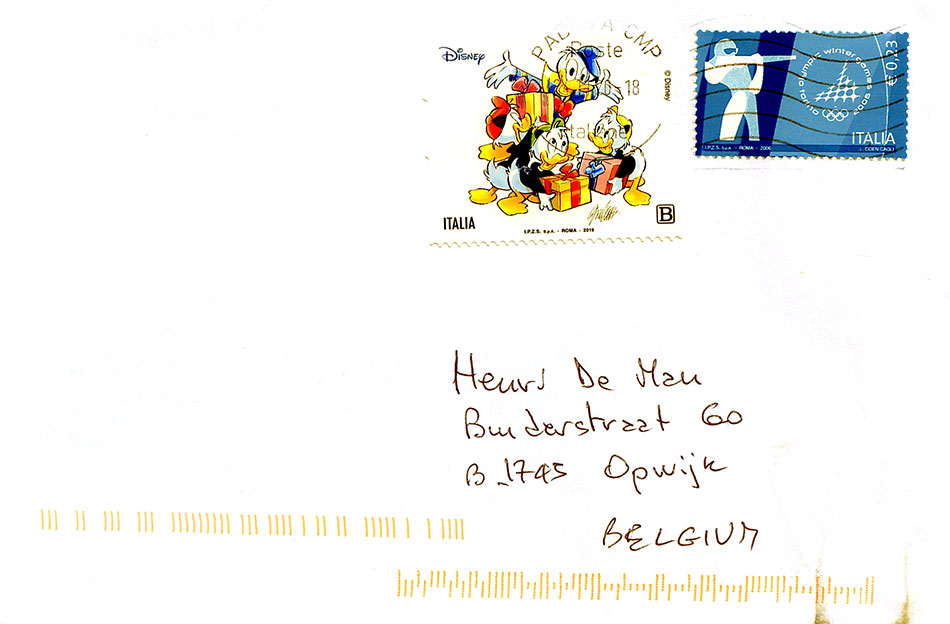 Disney
PADOVA CMP
Poste
-18
Italiane
© Disney
ITALIA
B
I.P.Z.S. S.p.A. - ROMA - 2019
€ 0,23
torino 2006 olympic winter games
ITALIA
I.P.Z.S. S.p.A. - ROMA - 2006
L. COEN CAGLI
Henri De Man
Binderstraat 60
B_1745 Opwijk
BELGIUM